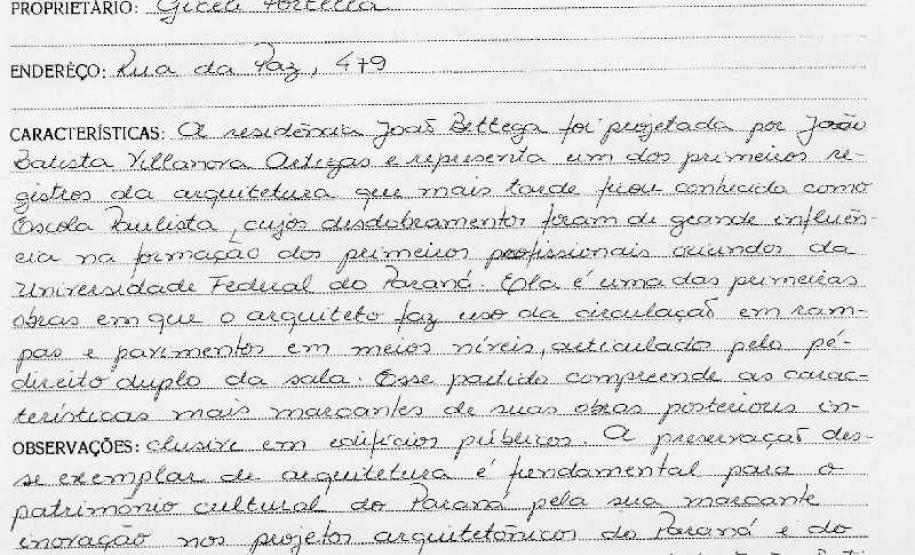 PROPRIETÁRIO: Giceli Portella
ENDERÊÇO: Rua da Paz, 479
CARACTERÍSTICAS: A residência João Bettega foi projetada por João
Batista Villanova Artigas e representa um dos primeiros re-
gistros da arquitetura que mais tarde ficou conhecida como
Escola Paulista, cujos desdobramentos foram de grande influên-
cia na formação dos primeiros profissionais oriundos da
Universidade Federal do Paraná. Esta é uma das primeiras
obras em que o arquiteto faz uso da circulação em ram-
pas e pavimentos em meios níveis, articulado pelo pé-
direito duplo da sala. Esse partido compreende as carac-
terísticas mais marcantes de suas obras posteriores in-
OBSERVAÇÕES: clusive em edifícios públicos. A preservação des-
se exemplar de arquitetura é fundamental para o
patrimônio cultural do Paraná pela sua marcante
inovação nos projetos arquitetônicos do Paraná e do